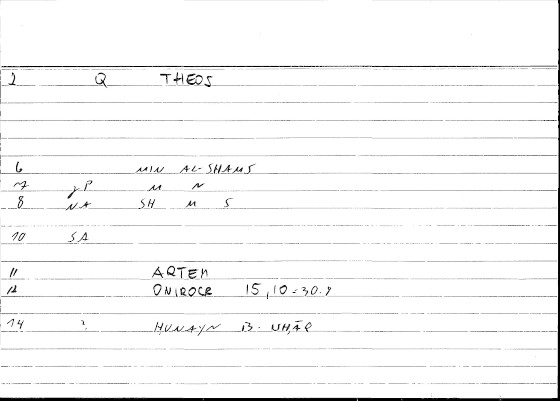 2 Q THEOS
6 MIN AL-SHAMS
7 gP M N
8 NA SH M S
10 SA
11 ARTEM
12 ONIROCR 15,10-30.8
14 ? HUNAYN B.